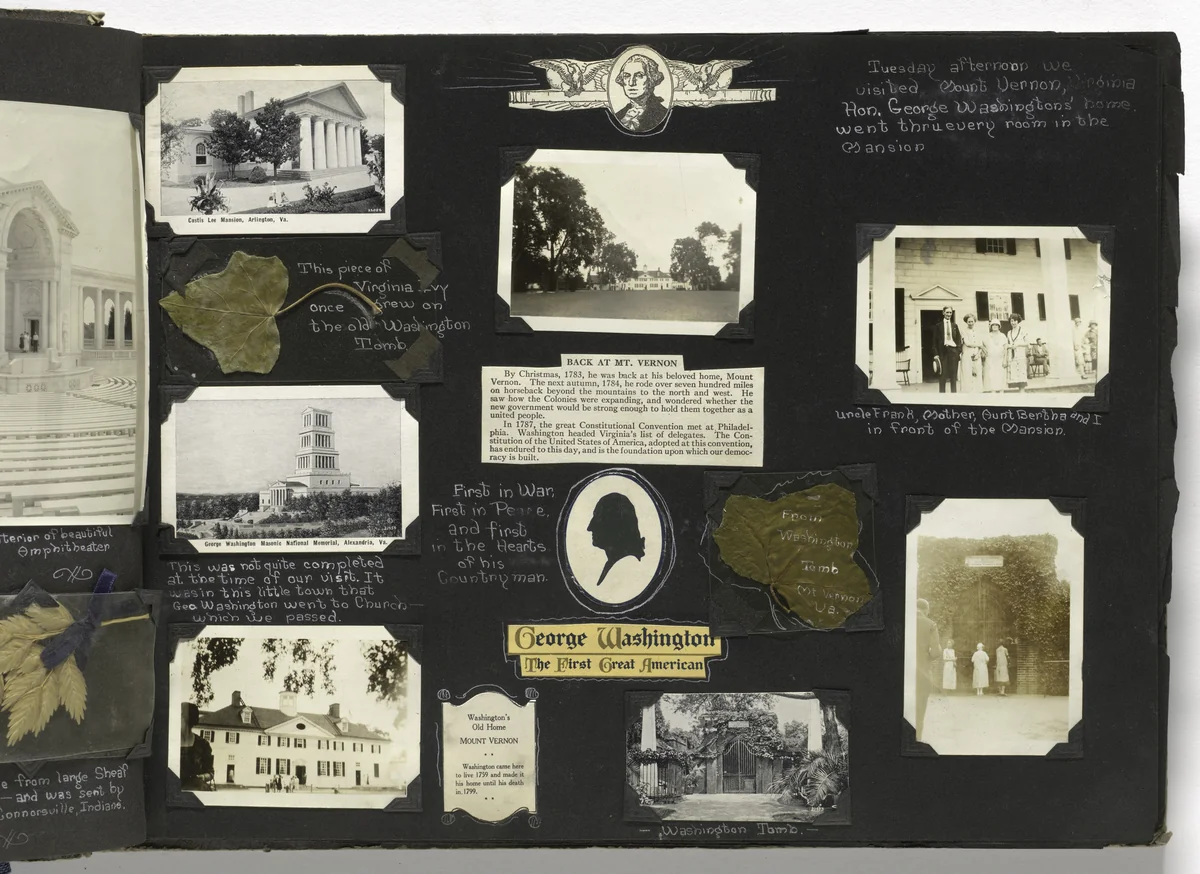 terior of beautiful
Amphitheater
e from large Sheaf
and was sent by
Connorsville, Indiana.
Custis Lee Mansion, Arlington, Va.
This piece of
Virginia Ivy
once grew on
the old Washington
Tomb.
George Washington Masonic National Memorial, Alexandria, Va.
This was not quite completed
at the time of our visit. It
was in this little town that
Geo Washington went to Church —
which we passed.
BACK AT MT. VERNON
By Christmas, 1783, he was back at his beloved home, Mount
Vernon. The next autumn, 1784, he rode over seven hundred miles
on horseback beyond the mountains to the north and west. He
saw how the Colonies were expanding, and wondered whether the
new government would be strong enough to hold them together as a
united people.
In 1787, the great Constitutional Convention met at Philadel-
phia. Washington headed Virginia's list of delegates. The Con-
stitution of the United States of America, adopted at this convention,
has endured to this day, and is the foundation upon which our democ-
racy is built.
First in War,
First in Peace,
and first
in the Hearts
of his
Countryman.
From
Washington
Tomb
Mt Vernon
Va.
George Washington
The First Great American
Washington's
Old Home
MOUNT VERNON
Washington came here
to live 1759 and made it
his home until his death
in 1799.
— Washington Tomb. —
Tuesday afternoon we
visited Mount Vernon, Virginia
Hon. George Washingtons' home.
went thru every room in the
Mansion
Uncle Frank, Mother, Aunt Bertha and I
in front of the Mansion.